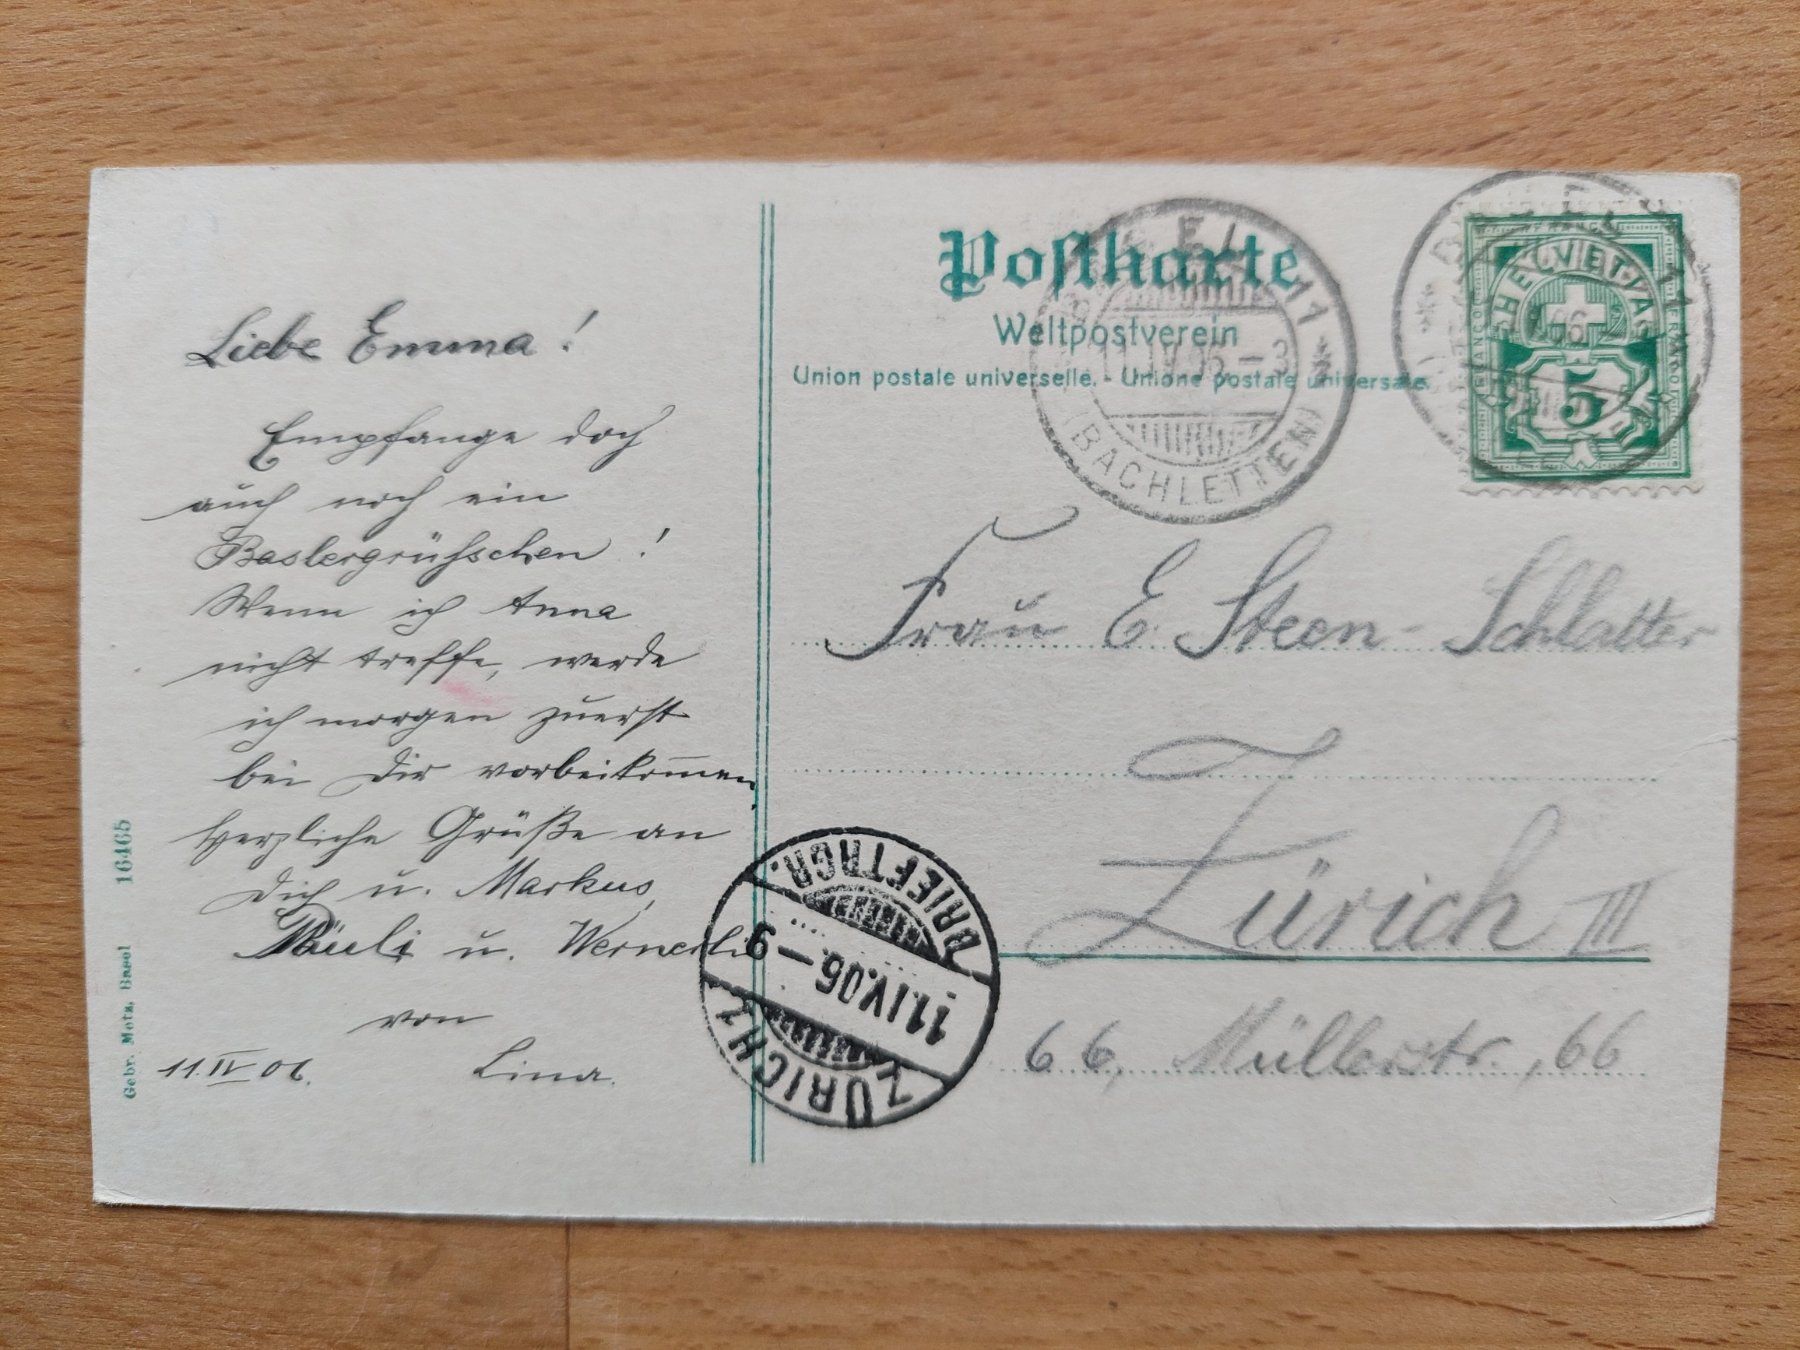 Liebe Emma!
Empfange doch
auch noch ein
Baslergrüßschen!
Wenn ich Anna
nicht treffe, werde
ich morgen zuerst
bei Dir vorbeikommen,
Herzliche Grüße an
Dich u. Markus,
Pauli u. Wernerli
von
11.IV 06. Lina.
Gebr. Metz, Basel 16465
Postkarte
Weltpostverein
Union postale universelle. - Unione postale universale.
BASEL 11
11.IV.06.-3
(BACHLETTEN)
HELVETIA
FRANCO
5
Frau E. Steen-Schlatter
Zürich III
66, Müllerstr., 66
ZÜRICH 1
11.IV.06.-9
BRIEFTRGR.